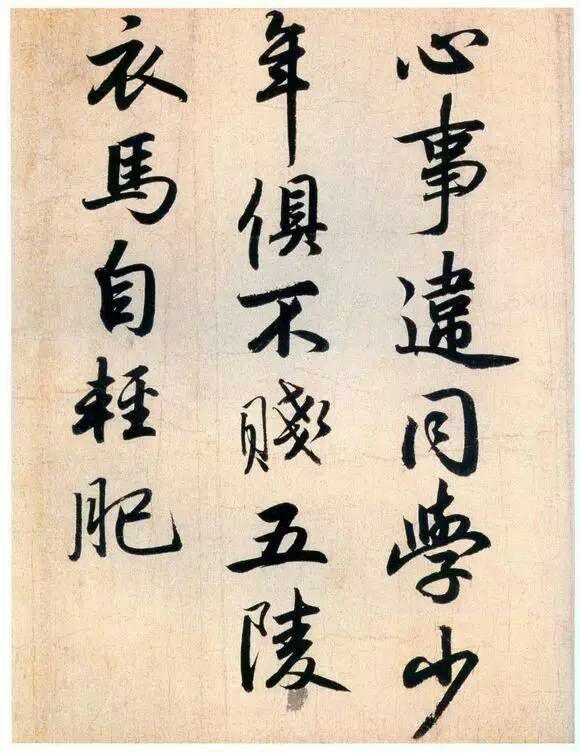 心事違同學少
年俱不賤五陵
衣馬自輕肥